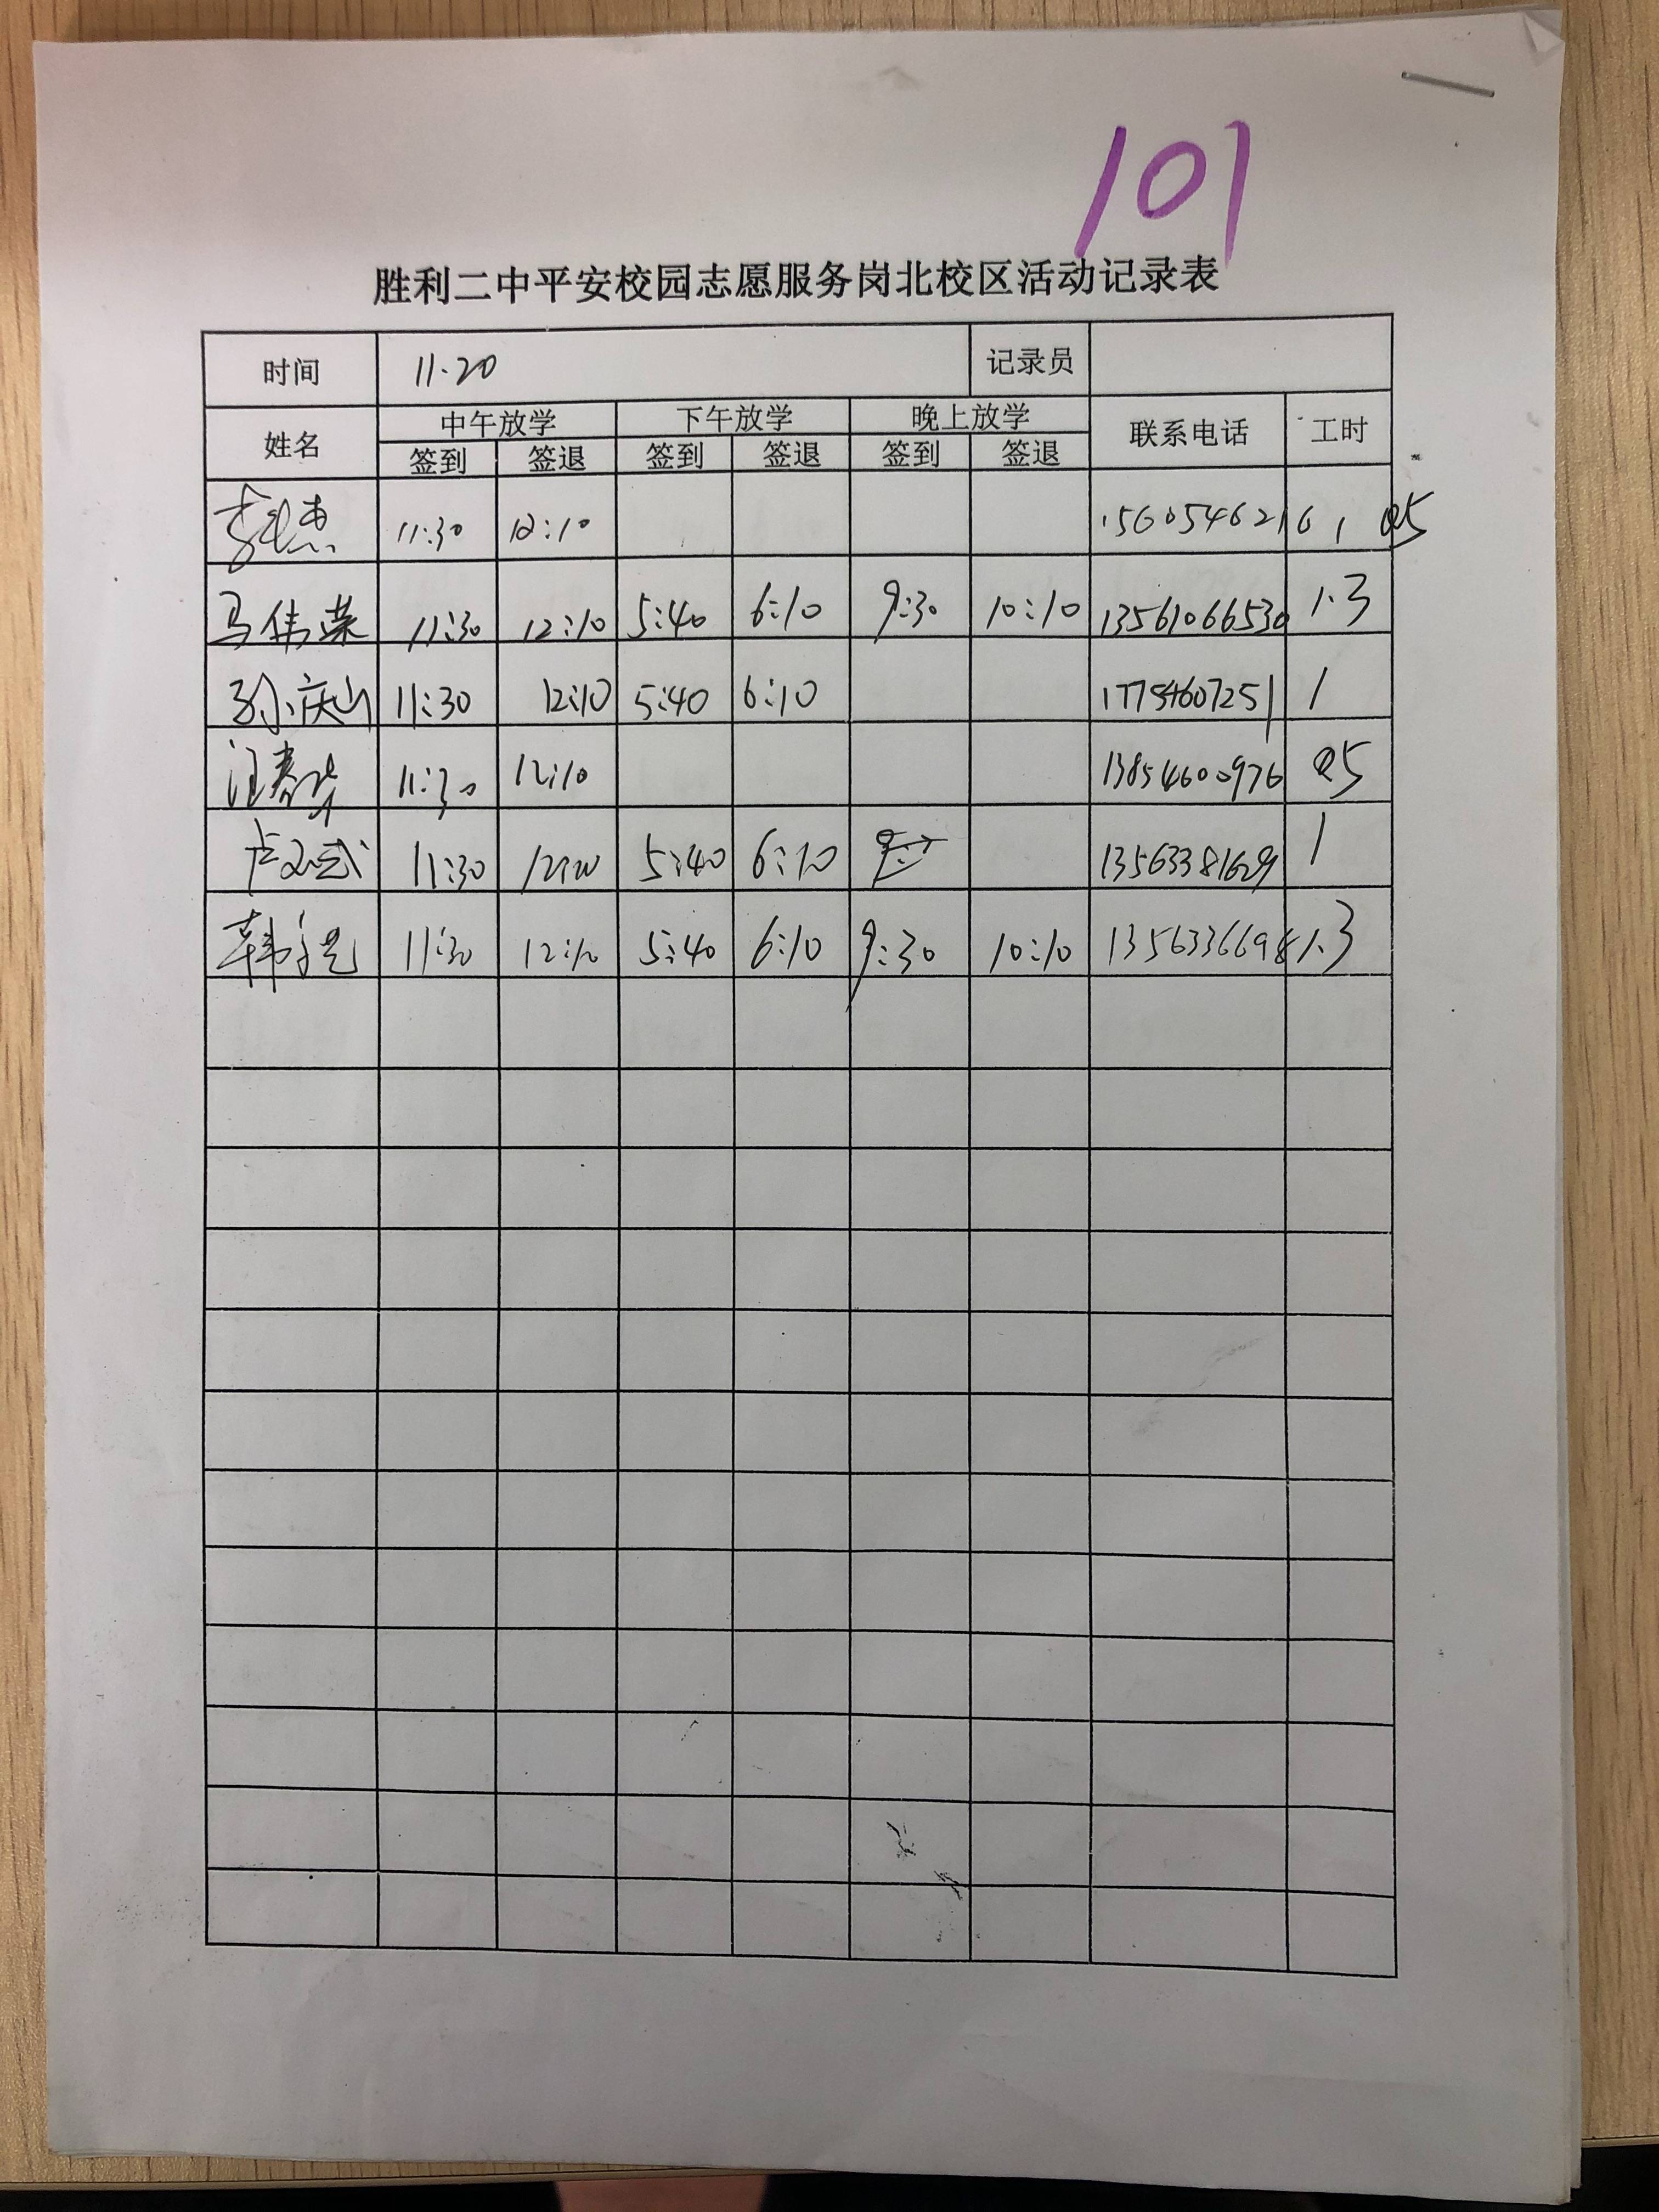 101
胜利二中平安校园志愿服务岗北校区活动记录表
时间 11.20 记录员
姓名 中午放学 下午放学 晚上放学 联系电话 工时
签到 签退 签到 签退 签到 签退
11:30 12:10 15605462161 0.5
马伟荣 11:30 12:10 5:40 6:10 9:30 10:10 13561066530 1.3
孙庆山 11:30 12:10 5:40 6:10 17754607251 1
汪春华 11:30 12:10 13854600976 0.5
卢文武 11:30 5:40 6:10 13563381629 1
韩 11:30 12:10 5:40 6:10 9:30 10:10 13563366981.3